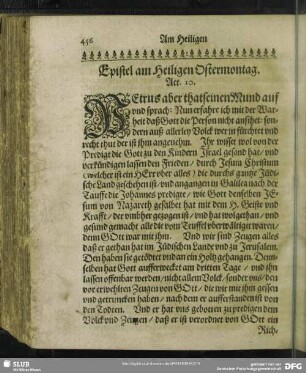 456 Am Heiligen
Epistel am Heiligen Ostermontag.
Act. 10.
PEtrus aber that seinen Mund auf
vnd sprach: Nun erfahr ich mit der War-
heit daß Gott die Person nicht ansihet: son-
dern auß allerley Volck wer in fürchtet vnd
recht thut der ist jhm angenehm. Ihr wisset wol von der
Predigt die Gott zu den Kindern Israel gesand hat / vnd
verkündigen lassen den Frieden / durch Jesum Christum
(welcher ist ein HErr ober alles) die durchs gantze Jüdi-
sche Land geschehen ist: vnd angangen in Galilea nach der
Tauffe die Johannes predigte / wie Gott denselben JE-
sum von Nazareth gesalbet hat mit dem H. Geiste vnd
Krafft / der vmbher gezogen ist / vnd hat wolgethan / vnd
gesund gemacht alle die vom Teuffel oberwältiget waren /
denn GOtt war mit jhm. Vnd wir sind Zeugen alles
daß er gethan hat im Jüdischen Lande vnd zu Jerusalem.
Den haben sie getödtet vnd an ein Holtz gehangen. Demsel-
selben hat Gott aufferwecket am dritten Tage / vnd jhn
lassen offenbar werden / nicht allem Volck, sonder vns / den
vor erwehlten Zeugen von GOtt / die wir mit jhm gessen
vnd getruncken haben / nach dem er aufferstanden ist von
den Todten. Vnd er hat vns geboten zu predigen dem
Volck vnd Zeugen / daß er ist verordnet von GOtt ein
Rich-
SLUB
Wir führen Wissen.